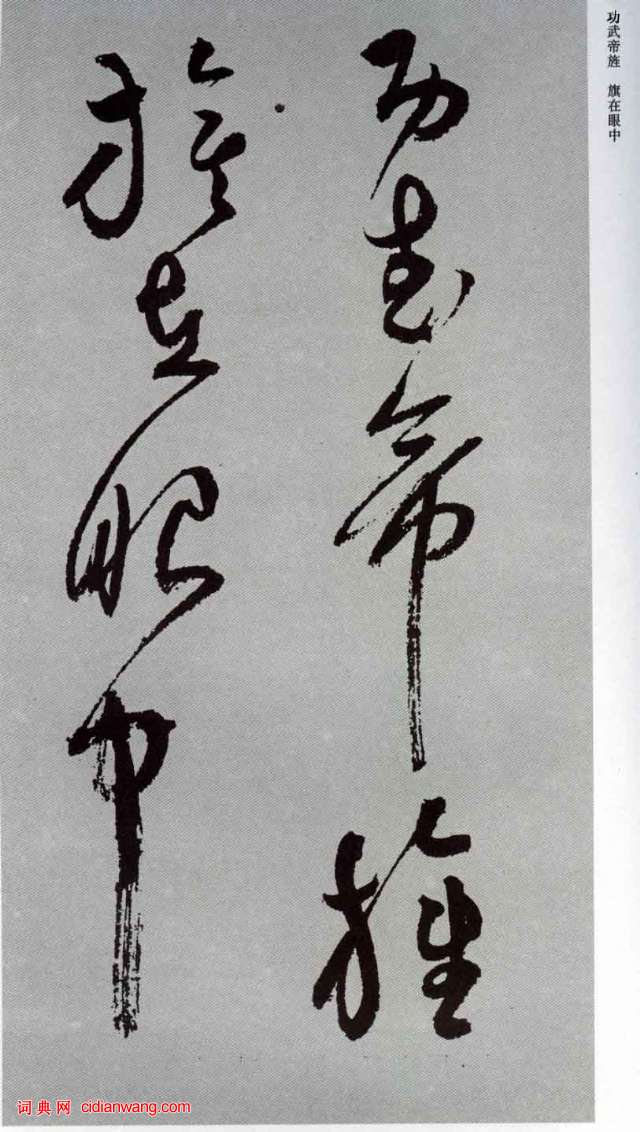 功武帝旌　旗在眼中
功武帝旌
旗在眼中
词典网 cidianwang.com